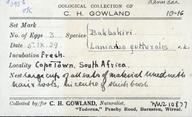 OOLOGICAL COLLECTION OF
C. H. GOWLAND
10-16
Set Mark
No of Eggs 3 Species Bakbakiri
Date Laniarius gutturalis
Incubation Fresh.
Locality Cape Town, South Africa.
Nest Large cup of all sorts of material lined with
hairy roots, in centre of thick bush
Collected for C. H. GOWLAND, Naturalist,
Barnston, Wirral.